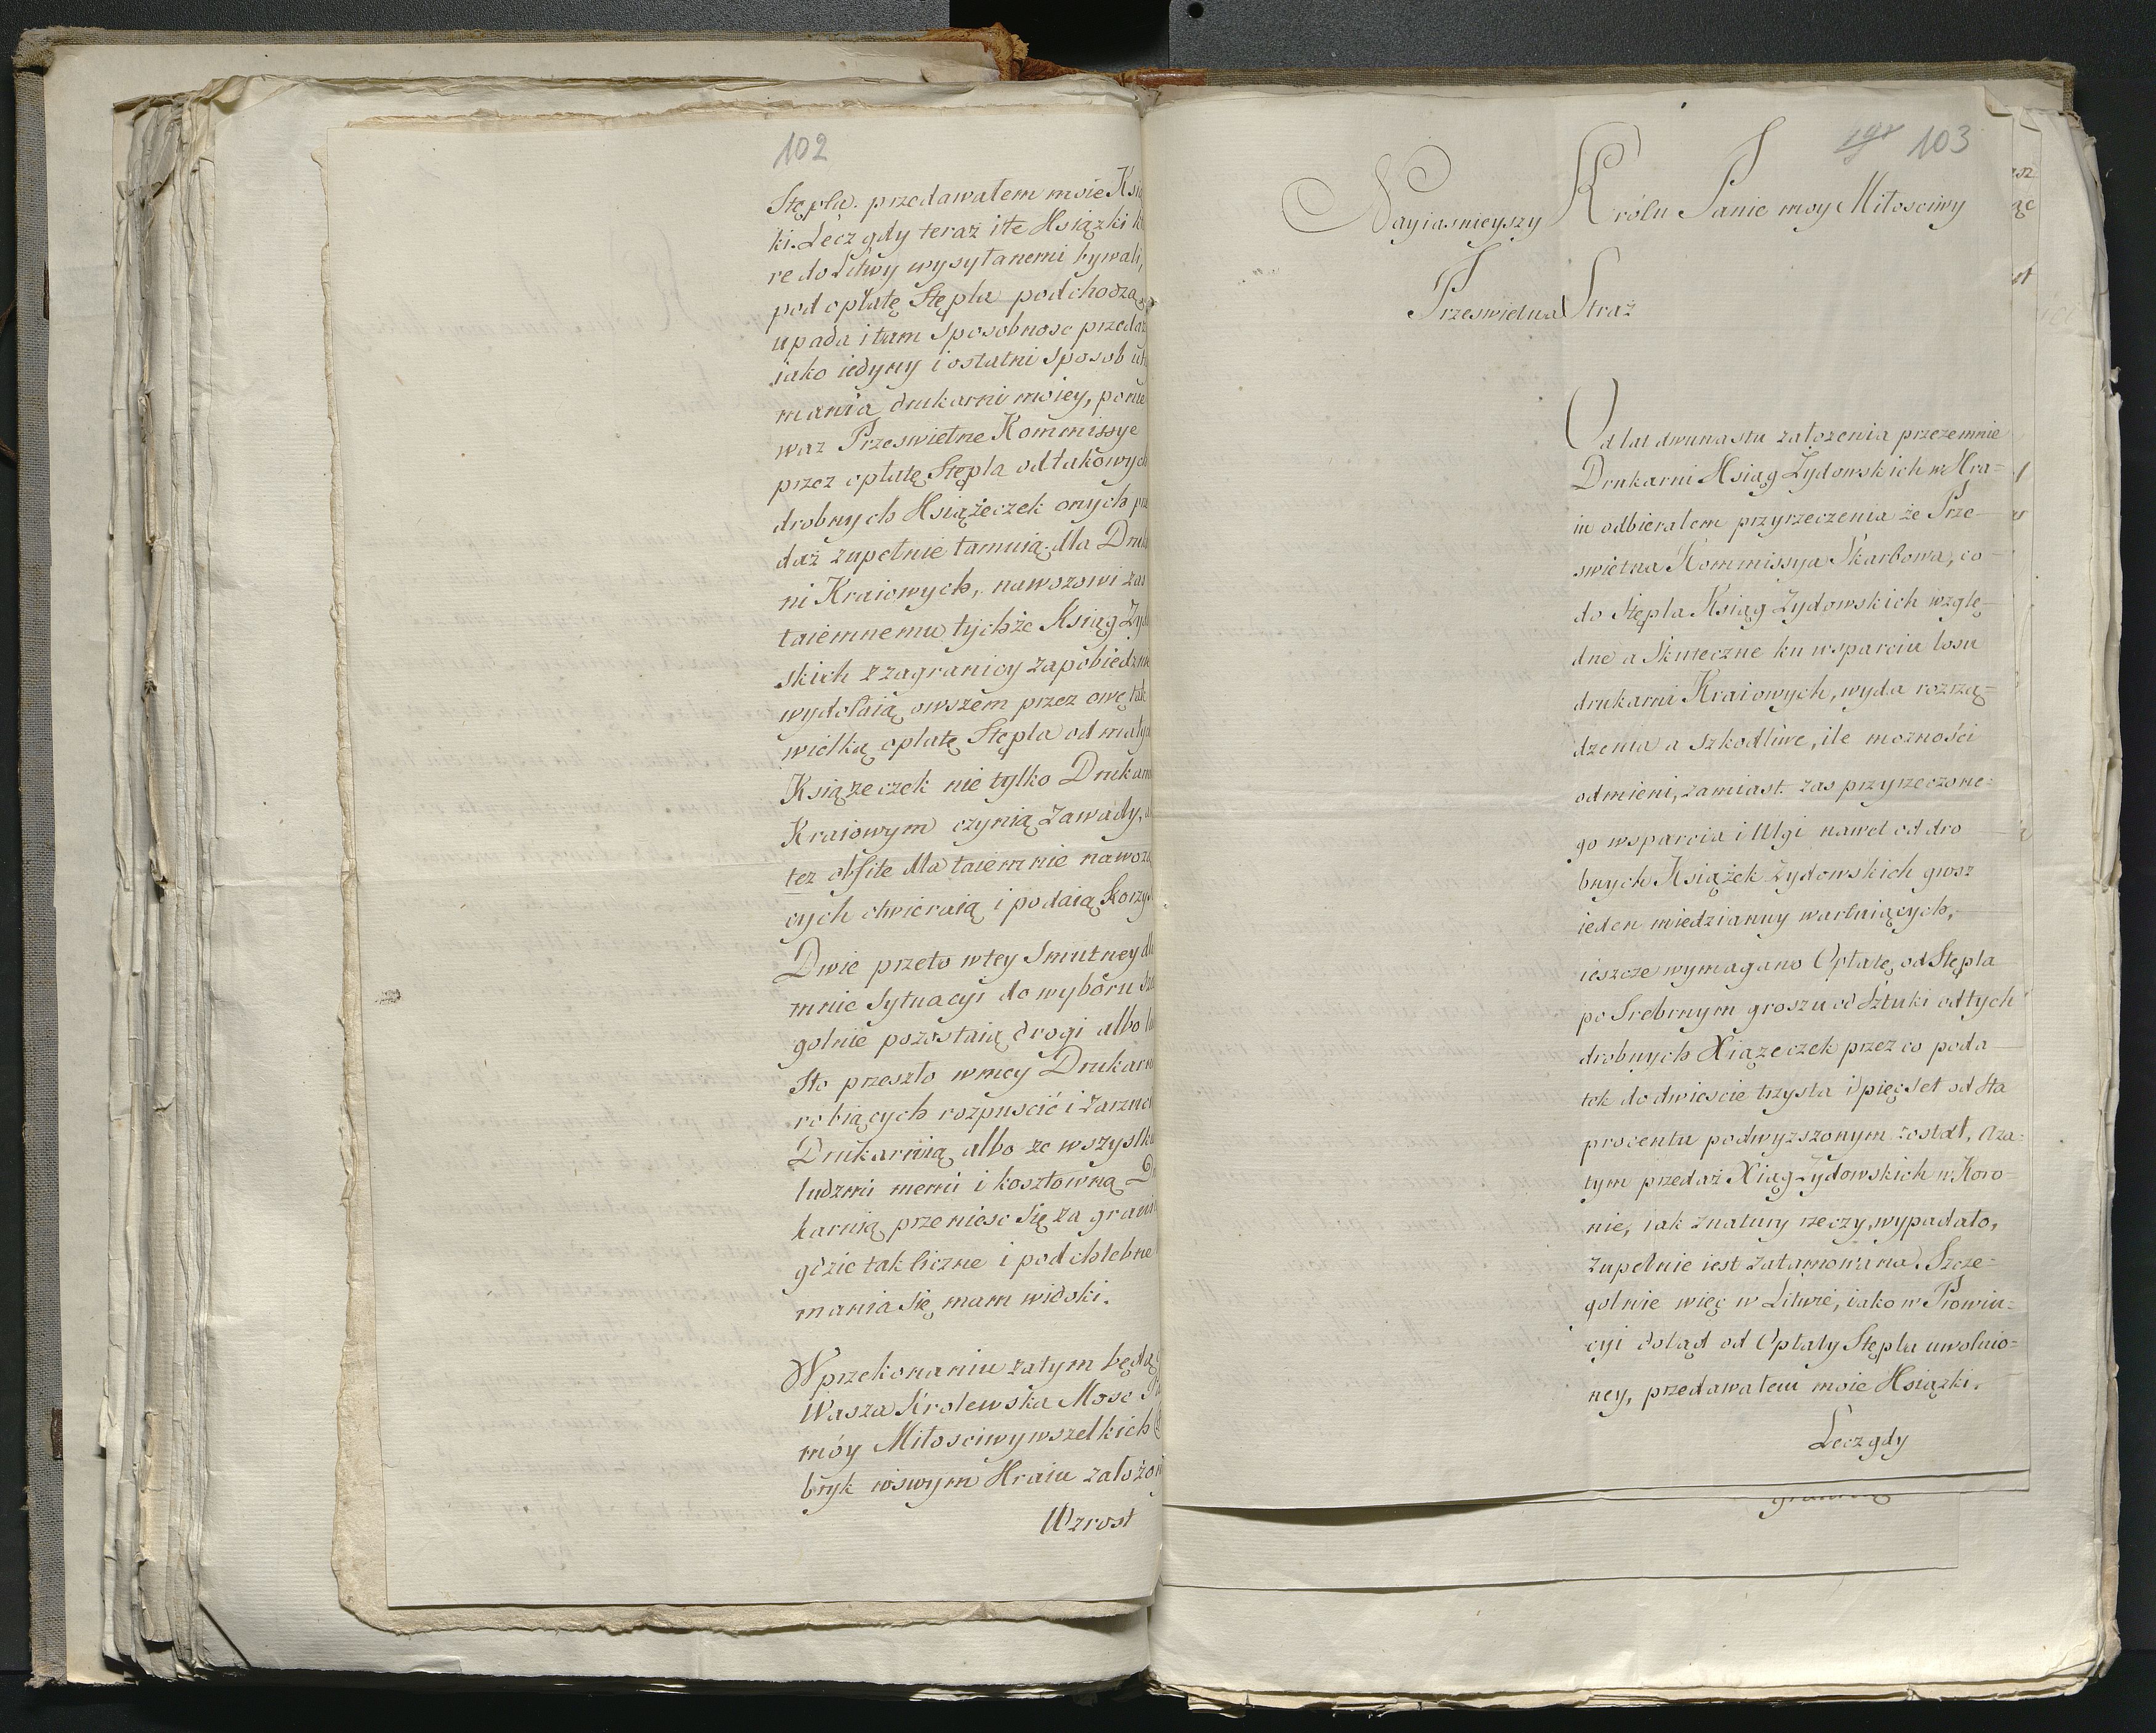 102
Stępla. przedawałem moie Ksią
ki. Lecz gdy teraz i te Książki k
re do Litwy wysyłanemi bywali,
pod opłatę Stępla podchodzą
upada i tam Sposobnosc przeda
iako iedyny i ostatni Sposob ut
mania drukarni moiey, ponie
waz Przeswietne Kommissye
przez opłatę Stępla od takowych
drobnych Książeczek onych prze
daż zupełnie tamuią. dla Druka
ni Kraiowych, nawozowi zas
taiemnemu tychże Ksiąg Żyd
skich z zagranicy zapobiedz nie
wydołaią owszem przez owę tak
wielką opłatę Stępla od małych
Książeczek nie tylko Drukarn
Kraiowym czynią zawady, a
tez obfite dla taiemnie nawozą
cych otwieraią i podaią Korzys
Dwie przeto w tey Smutney dla
mnie Sytuacyi do wyboru Szcze
golnie pozostaią drogi albo lu
Sto przeszło w mey Drukarni
robiących rozpuscić i zarzuc
Drukarnią albo ze wszystk
ludzmi memi i kosztowną Dru
karnią przeniesc Się za grani
gdzie tak liczne i podchlebne
mania Się mam widoki.
W przekonaniu zatym będąc
Wasza Krolewska Mosc Pa
móy Miłosciwy wszelkich
bryk w swym Kraiu założon
Wzrost
103
Nayiasnieyszy Królu Panie moy Miłosciwy
Przeswietna Straż
Od lat dwunastu założenia przezemnie
Drukarni Ksiąg Żydowskich w Kra=
iu odbierałem przyrzeczenia że Prze-
swietna Kommissya Skarbowa, co
do Stępla Ksiąg Żydowskich wzglę-
dne a Skuteczne ku wsparciu losu
drukarni Kraiowych, wyda rozrzą=
dzenia a szkodliwe, ile mozności
odmieni, zamiast zas przyrzeczone=
go wsparcia i Ulgi nawet od dro
bnych Książek żydowskich grosz
ieden miedzianny wartuiących,
ieszcze wymagano Opłatę od Stępla
po Srebrnym groszu od Sztuki od tych
drobnych Xiążeczek przez co poda
tek do dwiescie trzysta i pięcset od sta
procentu podwyzszonym został, a za=
tym przedaż Xiąg Żydowskich w Koro=
nie, iak z natury rzeczy, wypadało,
zupełnie iest zatamowana. Szcze=
golnie więc w Litwie, iako w Prowin=
cyi dotąd od Opłaty Stępla uwolnio=
ney, przedawałem moie Książki.
Lecz gdy